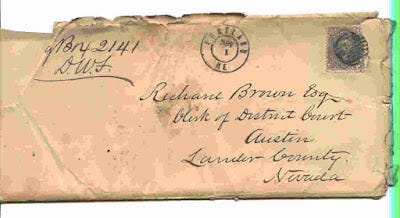 Box 2141
D.W.S.
PORTLAND
NOV
1
ME.
Richard Brown Esq
Clerk of District Court
Austin
Lander County.
Nevada